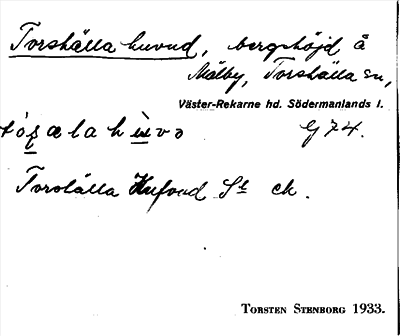 Torshälla huvud, bergshöjd å
Mälby, Torshälla sn,
Väster-Rekarne hd. Södermanlands l.
G 74.
Torshälla Hufvud St ek.
TORSTEN STENBORG 1933.